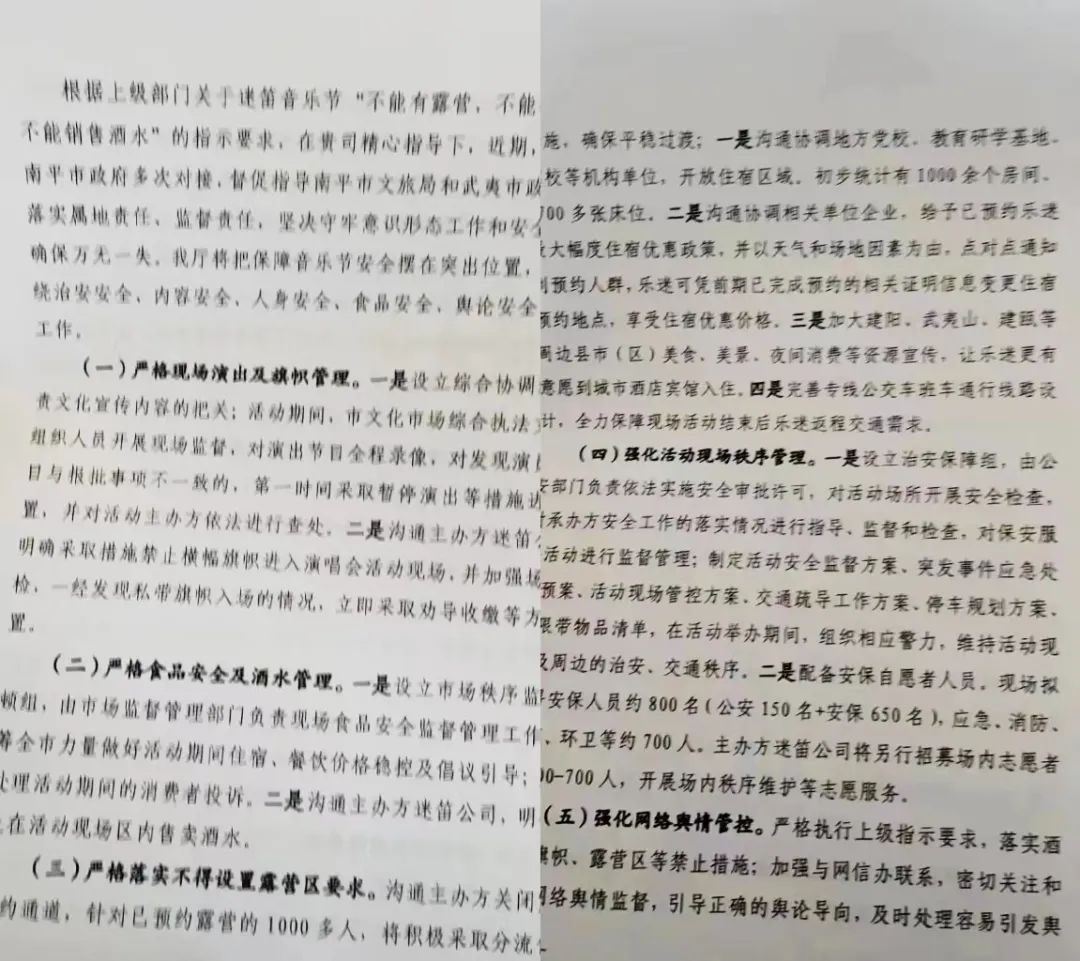 根据上级部门关于迷笛音乐节“不能有露营,不能
不能销售酒水”的指示要求,在贵司精心指导下,近期,
南平市政府多次对接,督促指导南平市文旅局和武夷市政
落实属地责任、监督责任,坚决守牢意识形态工作和安全
确保万无一失。我厅将把保障音乐节安全摆在突出位置,
绕治安安全、内容安全、人身安全、食品安全、舆论安全
工作。
(一)严格现场演出及旗帜管理。一是设立综合协调
责文化宣传内容的把关;活动期间,市文化市场综合执法支
组织人员开展现场监督,对演出节目全程录像,对发现演
目与报批事项不一致的,第一时间采取暂停演出等措施进
置,并对活动主办方依法进行查处。二是沟通主办方迷笛公
明确采取措施禁止横幅旗帜进入演唱会活动现场,并加强场
检,一经发现私带旗帜入场的情况,立即采取劝导收缴等方
置。
(二)严格食品安全及酒水管理。一是设立市场秩序监
顿组,由市场监督管理部门负责现场食品安全监督管理工作
筹全市力量做好活动期间住宿、餐饮价格稳控及倡议引导;
处理活动期间的消费者投诉。二是沟通主办方迷笛公司,明
在活动现场区内售卖酒水。
(三)严格落实不得设置露营区要求。沟通主办方关闭
约通道,针对已预约露营的1000多人,将积极采取分流
施,确保平稳过渡;一是沟通协调地方党校、教育研学基地、
校等机构单位,开放住宿区域。初步统计有1000余个房间、
700多张床位。二是沟通协调相关单位企业,给予已预约乐迷
大幅度住宿优惠政策,并以天气和场地因素为由,点对点通知
到预约人群,乐迷可凭前期已完成预约的相关证明信息变更住宿
预约地点,享受住宿优惠价格。三是加大建阳、武夷山、建瓯等
周边县市(区)美食、美景、夜间消费等资源宣传,让乐迷更有
意愿到城市酒店宾馆入住。四是完善专线公交车班车通行线路设
计,全力保障现场活动结束后乐迷返程交通需求。
(四)强化活动现场秩序管理。一是设立治安保障组,由公
安部门负责依法实施安全审批许可,对活动场所开展安全检查,
对承办方安全工作的落实情况进行指导、监督和检查,对保安服
活动进行监督管理;制定活动安全监督方案、突发事件应急处
预案、活动现场管控方案、交通疏导工作方案、停车规划方案、
限带物品清单,在活动举办期间,组织相应警力,维持活动现
及周边的治安、交通秩序。二是配备安保自愿者人员。现场拟
安保人员约800名(公安150名+安保650名),应急、消防、
、环卫等约700人。主办方迷笛公司将另行招募场内志愿者
00-700人,开展场内秩序维护等志愿服务。
(五)强化网络舆情管控。严格执行上级指示要求,落实酒
旗帜、露营区等禁止措施;加强与网信办联系,密切关注和
网络舆情监督,引导正确的舆论导向,及时处理容易引发舆